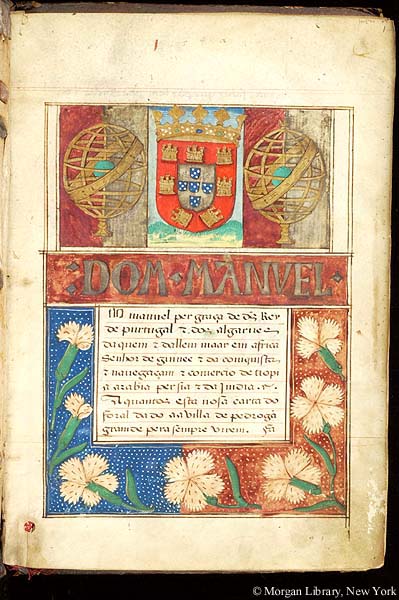 DOM · MANVEL ·
Dõ manuel per graça de dš Rey
de purtugal & dos algarues
daquem & dallem maar em africa
Senhor de guinee & da comquista
& nauegaçam & comercio de
arabia persia & da Imdia. &.
A quantos esta nosa carta do
foral dado aa villa de pedrogã
grande pera sempre virem. Fa
© Morgan Library, New York